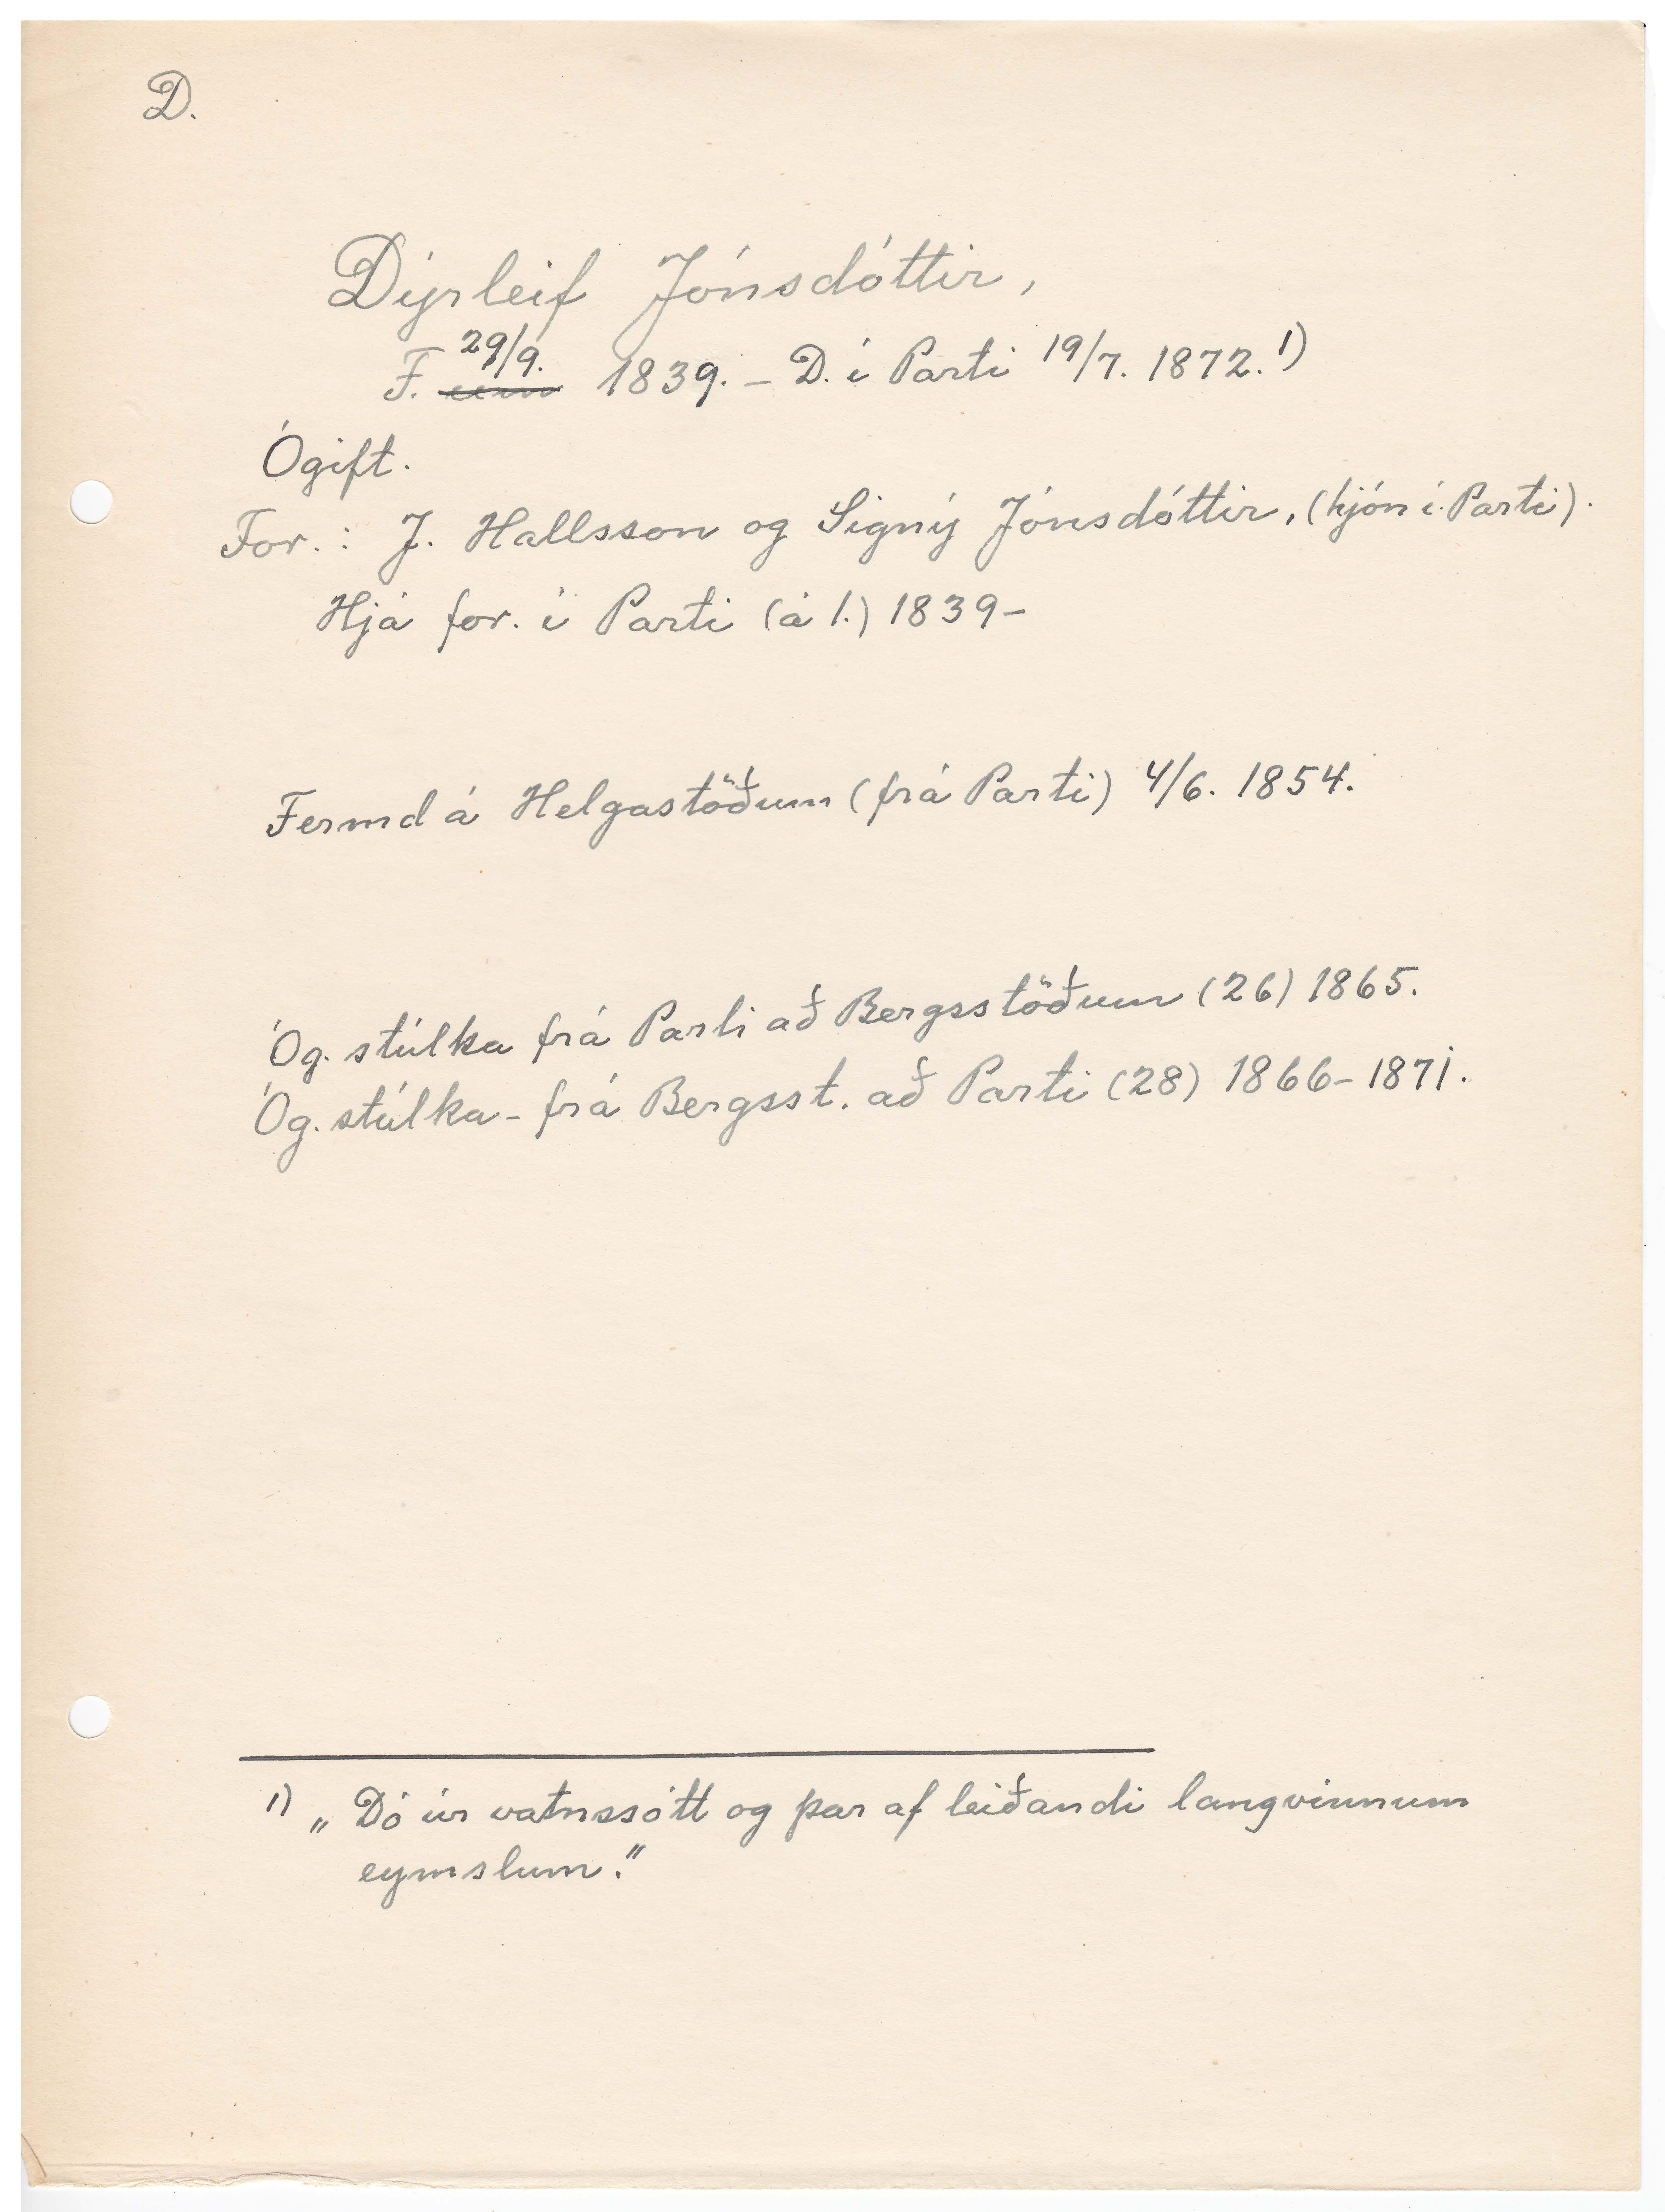 D.
Dýrleif Jónsdóttir,
F. 29/9. 1839. – D. í Parti 19/7. 1872. 1)
Ógift.
For. : J. Hallsson og Signý Jónsdóttir, (hjón í Parti).
Hjá for. í Parti (á 1.) 1839–
Fermd á Helgastöðum (frá Parti) 4/6. 1854.
Óg. stúlka frá Parti að Bergsstöðum (26) 1865.
Óg. stúlka – frá Bergsst. að Parti (28) 1866–1871.
1) „Dó úr vatnssótt og þar af leiðandi langvinnum
eymslum."